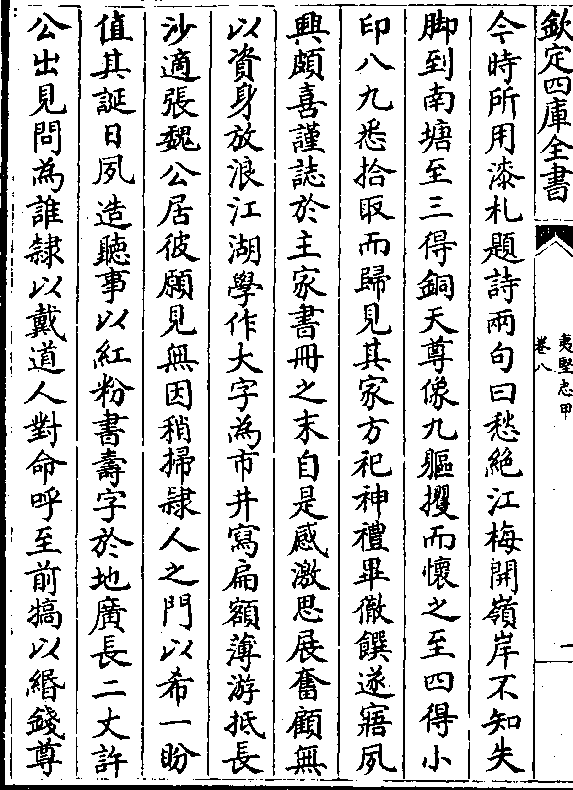 欽定四庫全書
夷堅志甲
卷八
一
今時所用漆札題詩兩句曰愁絶江梅開嶺岸不知失
脚到南塘至三得銅天尊像九軀攫而懷之至四得小
印八九悉拾取而歸見其家方祀神禮畢徹饌遂寤夙
興頗喜謹誌於主家書冊之末自是感激思展奮顧無
以資身放浪江湖學作大字為市井寫扁額薄游抵長
沙適張魏公居彼願見無因稍掃隸人之門以希一盼
值其誕日夙造聽事以紅粉書壽字於地廣長二丈許
公出見問為誰隸以戴道人對命呼至前犒以緡錢尊